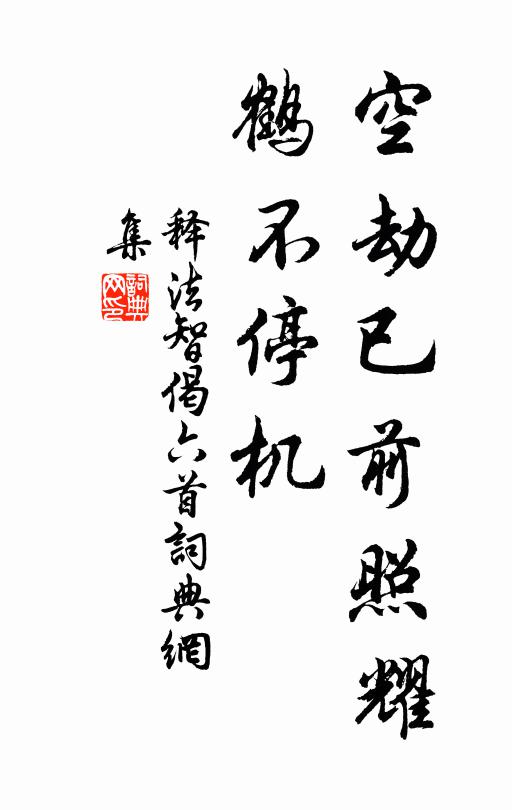 空劫已前照耀
鹤不停机
释法智偈六首詞典網
集
詞典
网印